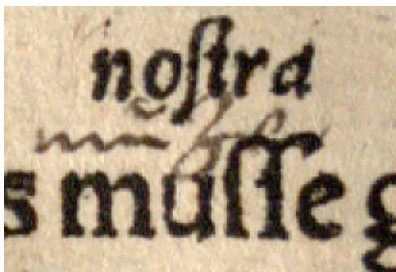 noſtra
s muſſe g